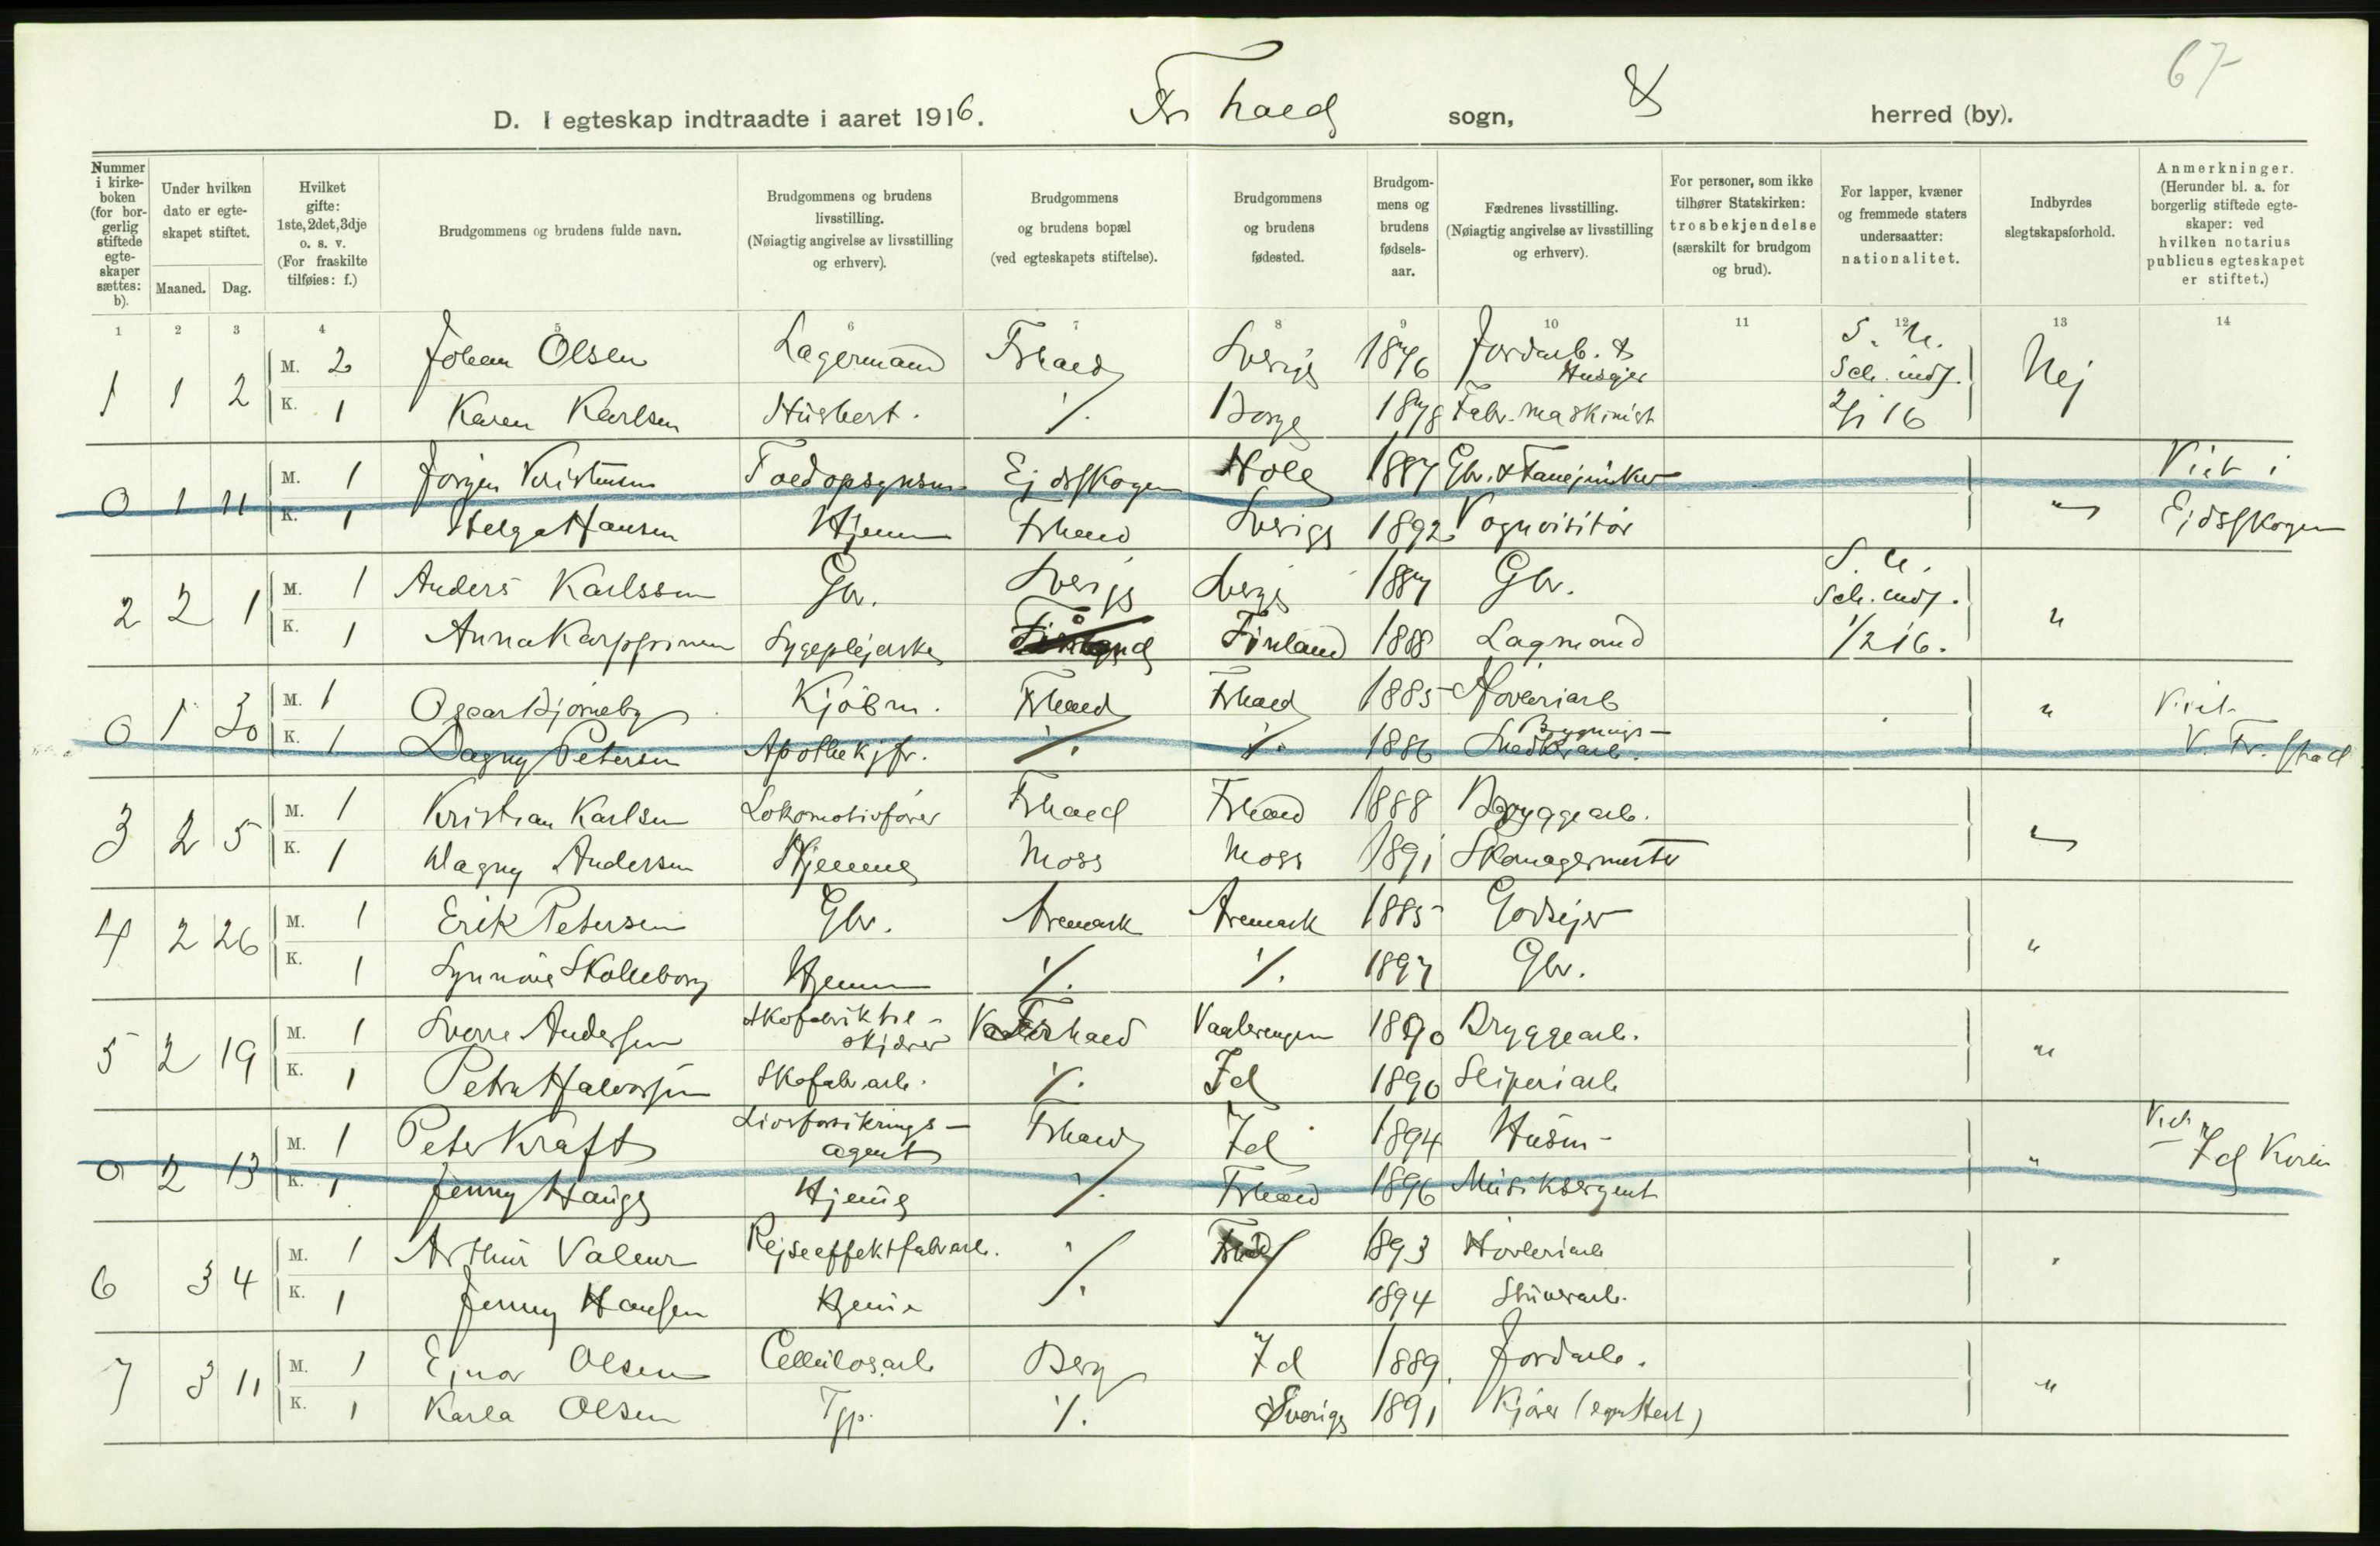 67
D. I egteskap indtraadte i aaret 1916. Fr hald sogn, & herred (by).
Nummer i kirkeboken (for borgerlig stiftede egteskaper sættes: b).
Under hvilken dato er egteskapet stiftet.
Maaned. Dag.
Hvilket gifte: 1ste, 2det, 3dje o. s. v. (For fraskilte tilføies: f.)
Brudgommens og brudens fulde navn.
Brudgommens og brudens livsstilling. (Nøiagtig angivelse av livsstilling og erhverv).
Brudgommens og brudens bopæl (ved egteskapets stiftelse).
Brudgommens og brudens fødested.
Brudgommens og brudens fødselsaar.
Fædrenes livsstilling. (Nøiagtig angivelse av livsstilling og erhverv).
For personer, som ikke tilhører Statskirken: trosbekjendelse (særskilt for brudgom og brud).
For lapper, kvæner og fremmede staters undersaatter: nationalitet.
Indbyrdes slegtskapsforhold.
Anmerkninger. (Herunder bl. a. for borgerlig stiftede egteskaper: ved hvilken notarius publicus egteskapet er stiftet.)
1 2 3 4 5 6 7 8 9 10 11 12 13 14
1 1 2 M. 2 Johan Olsen Lagermand Frhald Sverige 1876 Jordarb. & Husejer S. U. Sch. indf. Nej
K. 1 Karen Karlsen Husbest. ./. Borge 1878 Fabr. maskinist 2/1 16
0 1 11 M. 1 Jørgen Kristensen Toldopsynsm. Ejdskogen Hole 1887 Gbr. & Viet i
K. 1 Helga Hansen Hjemme Frhald Sverige 1892 Vognvisitør " Ejdsskogen
2 2 1 M. 1 Anders Karlsson Gbr. Sverige Sverige 1887 Gbr. S. U. Sch. indf. "
K. 1 Anna Karppinen Sygeplejerske Finland 1888 Lagmand 1/2 16.
0 1 30 M. 1 Oscar Bjørneby Kjøbm. Frhald Frhald 1885 Høvleriarb " Viet
K. 1 Dagny Petersen Apothekjfr. ./. ./. 1886 Bygnings- Snedkerarb. V. Fr. stad
3 2 5 M. 1 Kristian Karlsen Lokomotivfører Frhald Frhald 1888 Bryggearb. "
K. 1 Dagny Andersen Hjemme Moss Moss 1891 Skomagermester
4 2 26 M. 1 Erik Petersen Gbr. Aremark Aremark 1885 Godsejer "
K. 1 Synnøve Skolleborg Hjemme ./. ./. 1897 Gbr.
5 2 19 M. 1 Sverre Andersen Skofabriktilskjærer Frhald Vaalerengen 1890 Bryggearb. "
K. 1 Petra Halvorsen Skofabarb. ./. Id 1890 Sliperiarb
0 2 13 M. 1 Peter Kraft Livsforsikrings-agent Frhald Id 1894 Husm " Viet Id Kirke
K. 1 Jenny Hauge Hjeme ./. Frhald 1896 Musiksergent
6 3 4 M. 1 Arthur Valeur Rejseeffektfabrarb. ./. Frhald 1893 Høvleriarb "
K. 1 Jenny Hansen Hjeme 1894 Stuverarb.
7 3 11 M. 1 Ejnar Olsen Cellulosarb Berg Id 1889 Jordarb. "
K. 1 Karla Olsen Tjp. ./. Sverige 1891 Kjører (egen Hest)